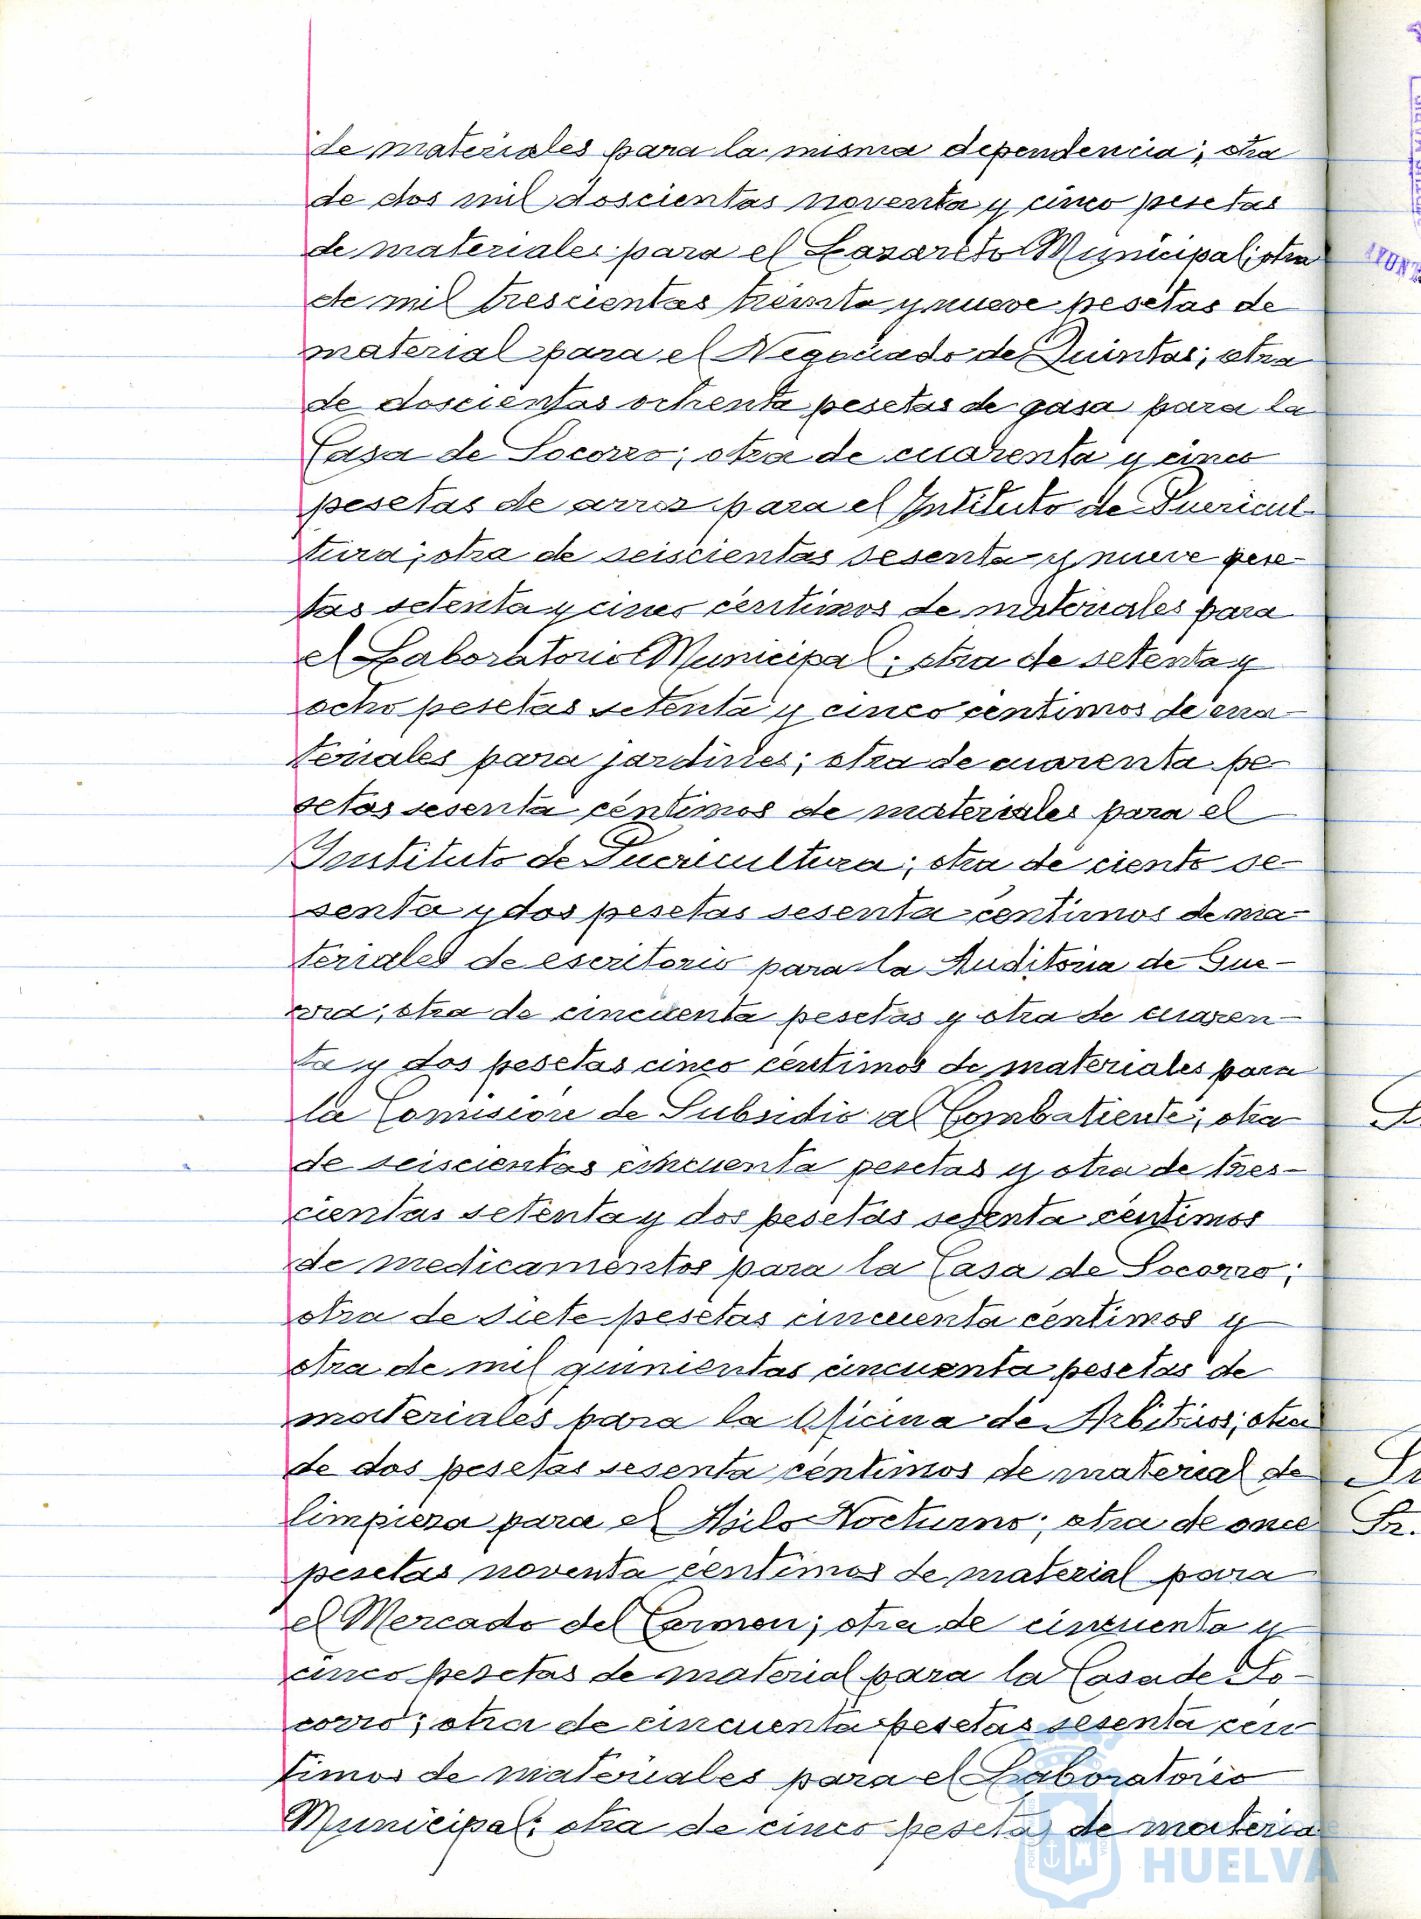 de materiales para la misma dependencia; otra
de dos mil doscientas noventa y cinco pesetas
de materiales para el Lazareto Municipal; otra
de mil trescientas treinta y nueve pesetas de
material para el Negociado de Quintas; otra
de doscientas ochenta pesetas de gasa para la
Casa de Socorro; otra de cuarenta y cinco
pesetas de arroz para el Intituto de Puericul-
tura; otra de seiscientas sesenta y nueve pese-
tas setenta y cinco céntimos de materiales para
el Laboratorio Municipal; otra de setenta y
ocho pesetas setenta y cinco céntimos de ma-
teriales para jardines; otra de cuarenta pe-
setas sesenta céntimos de materiales para el
Instituto de Puericultura; otra de ciento se-
senta y dos pesetas sesenta céntimos de ma-
teriales de escritorio para la Auditoria de Gue-
rra; otra de cincuenta pesetas y otra de cuaren-
ta y dos pesetas cinco céntimos de materiales para
la Comisión de Subsidio al Combatiente; otra
de seiscientas cincuenta pesetas y otra de tres-
cientas setenta y dos pesetas sesenta céntimos
de medicamentos para la Casa de Socorro;
otra de siete pesetas cincuenta céntimos y
otra de mil quinientas cincuenta pesetas de
materiales para la Oficina de Arbitrios; otra
de dos pesetas sesenta céntimos de material de
limpieza para el Asilo Nocturno; otra de once
pesetas noventa céntimos de material para
el Mercado del Carmen; otra de cincuenta y
cinco pesetas de material para la Casa de So-
corro; otra de cincuenta pesetas sesenta cén-
timos de materiales para el Laboratorio
Municipal; otra de cinco pesetas de materia
HUELVA